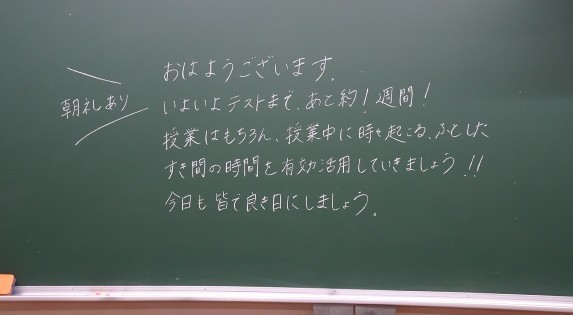 朝礼あり
おはようございます。
いよいよテストまで、あと約1週間!
授業はもちろん、授業中に時々起こる、ふとした
すき間の時間を有効活用していきましょう!!
今日も皆で良き日にしましょう。